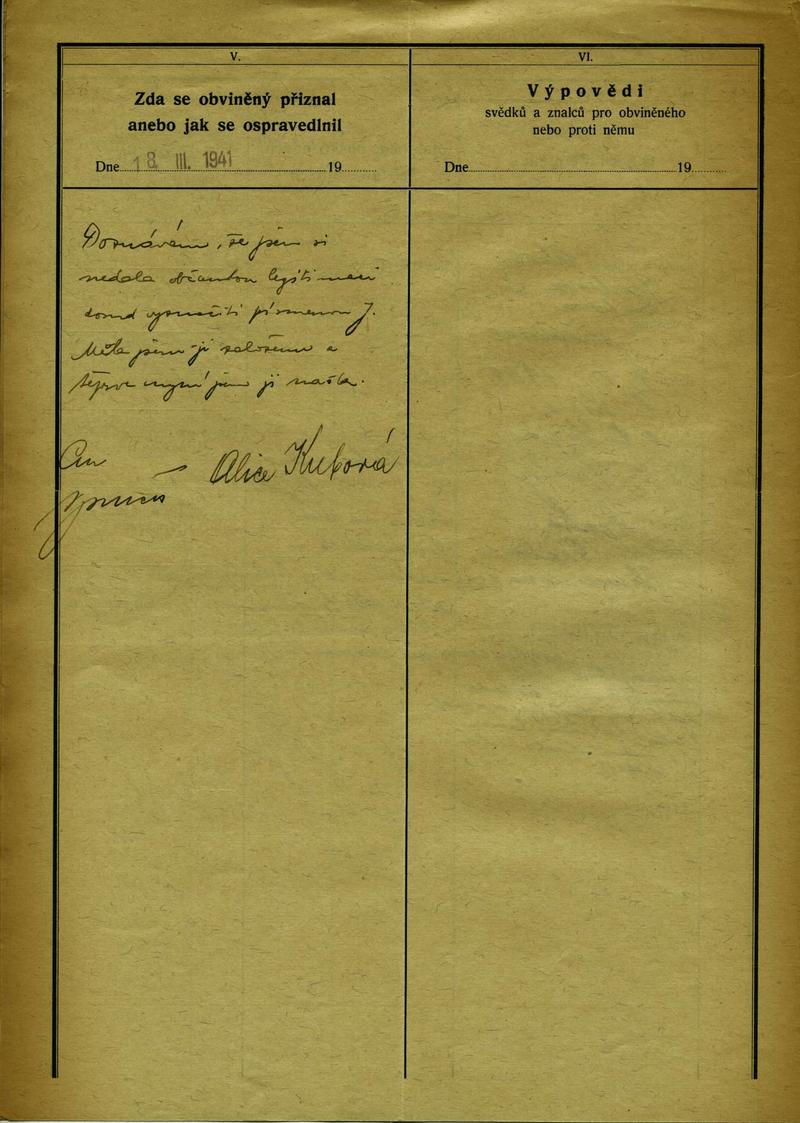 V.
Zda se obviněný přiznal
anebo jak se ospravedlnil
Dne 18. III. 1941 19
Doznávám, že jsem si
nedala občanskou legitimaci
dosud vyznačiti písmenem J.
Měla jsem ji založenu a
teprve nyní jsem ji našla.
Alice Kubová
VI.
Výpovědi
svědků a znalců pro obviněného
nebo proti němu
Dne 19